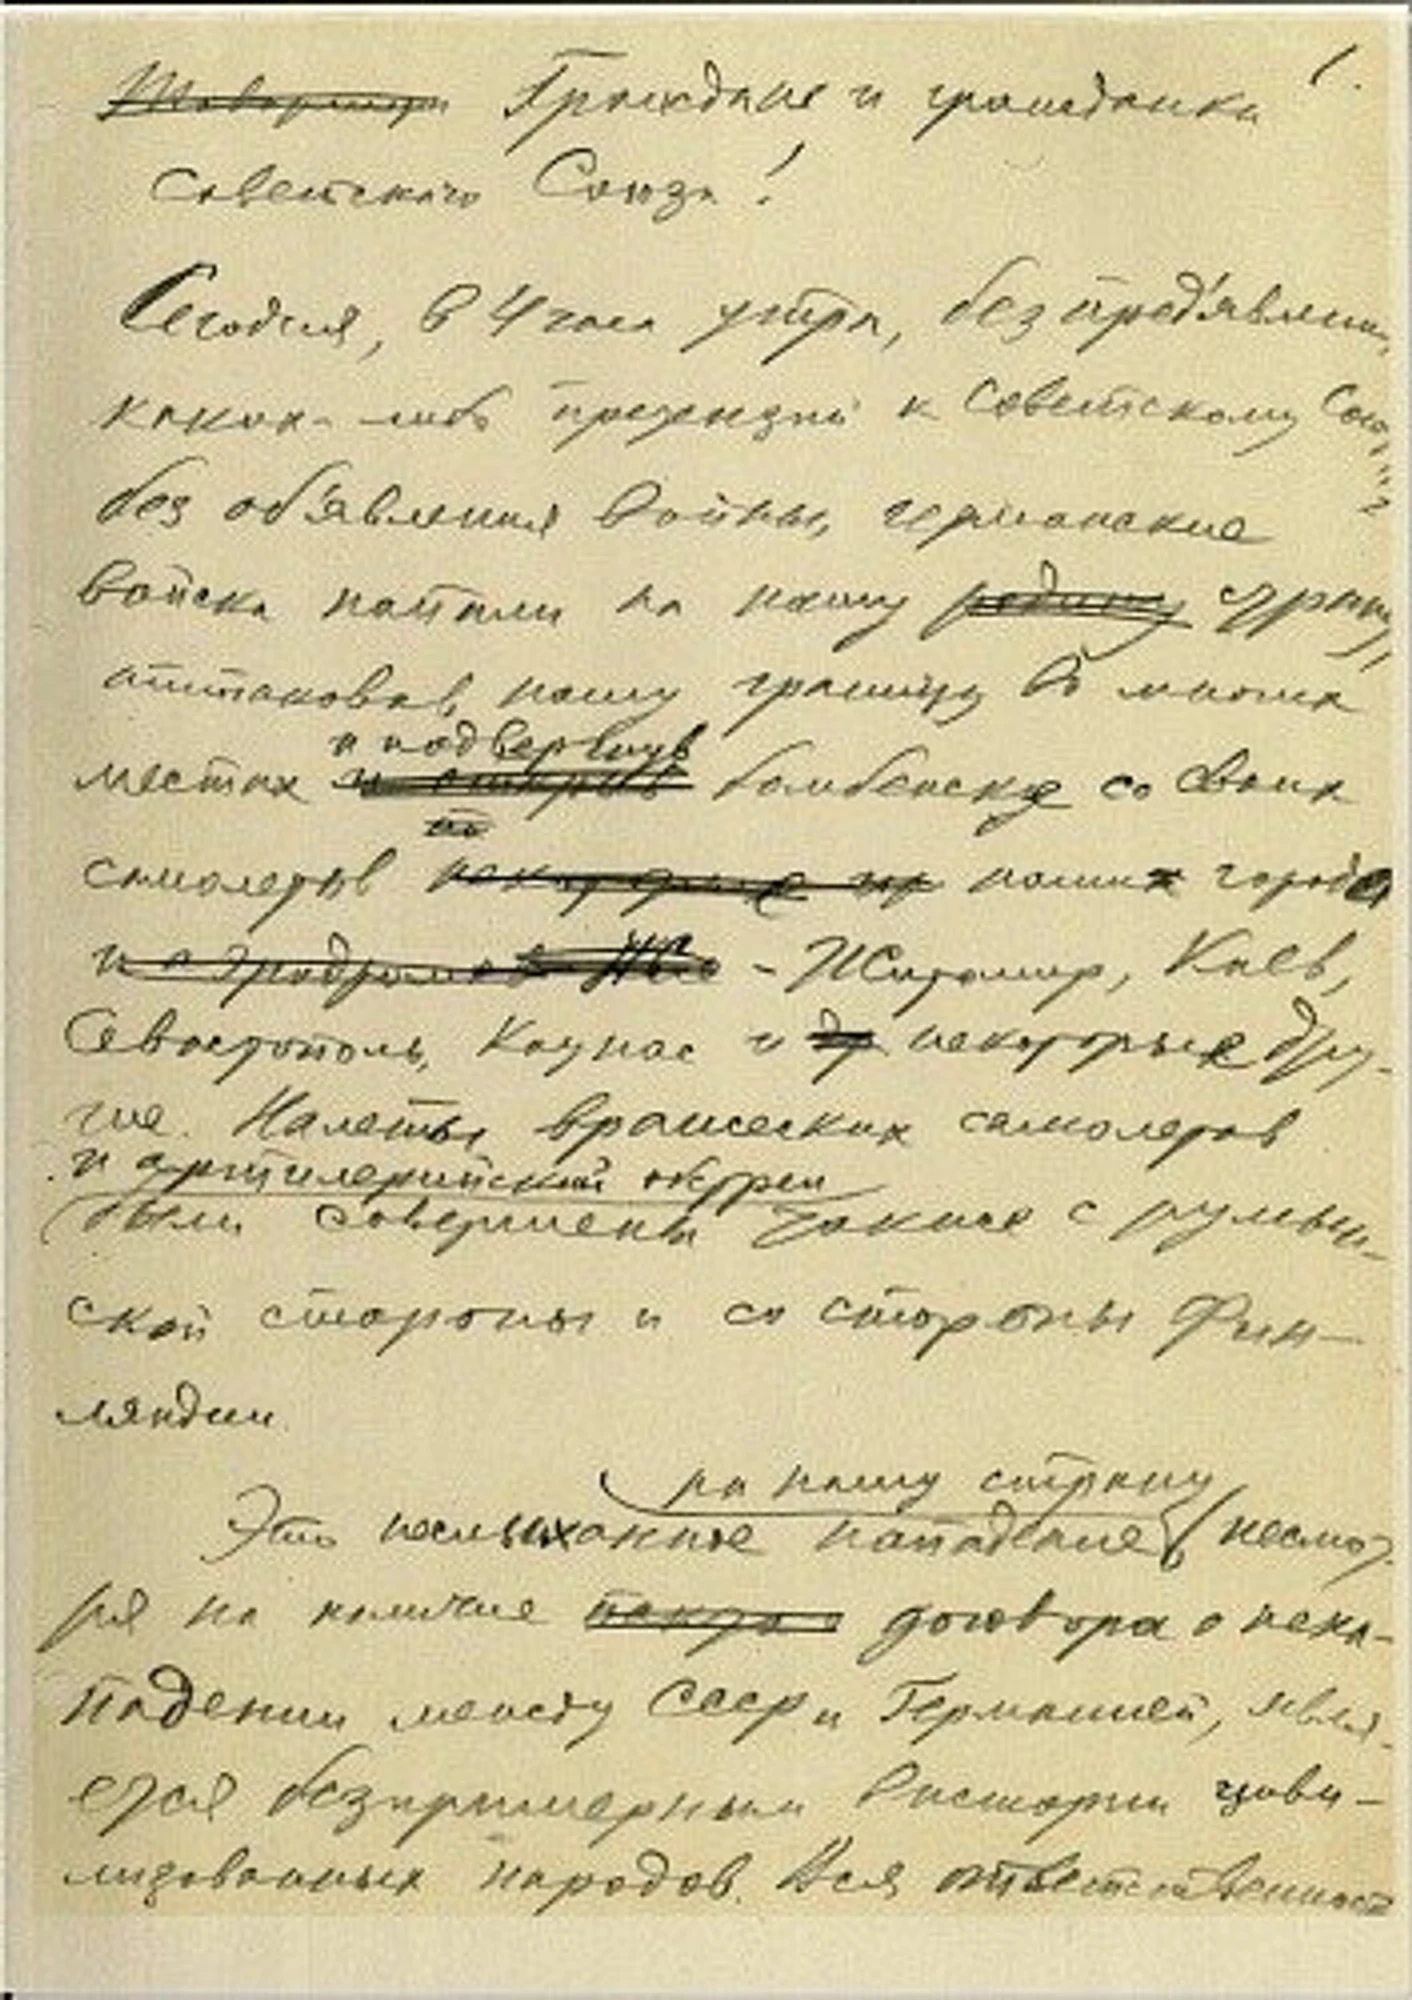 Товарищи Граждане и гражданки 1.
Советского Союза!
Сегодня, в 4 часа утра, без пред'явления
каких-либо претензий к Советскому Союзу,
без об'явления войны, германские
войска напали на нашу родину страну,
аттаковав нашу границу во многих
и подвергнув
местах и открыв бомбежке со своих
по
самолетов некоторые из наших города
и аэродромов - Житомир, Киев,
Севастополь, Каунас и др некоторые дру-
гие. Налеты вражеских самолетов
и артилерийский обстрел
были совершены также с румын-
ской стороны и со стороны Фин-
ляндии.
на нашу страну
Это неслыханное нападение (несмот-
ря на наличие пакта о договора о нена-
падении между СССР и Германией, явля-
ется безпримерным в истории циви-
лизованных народов. Вся ответственность